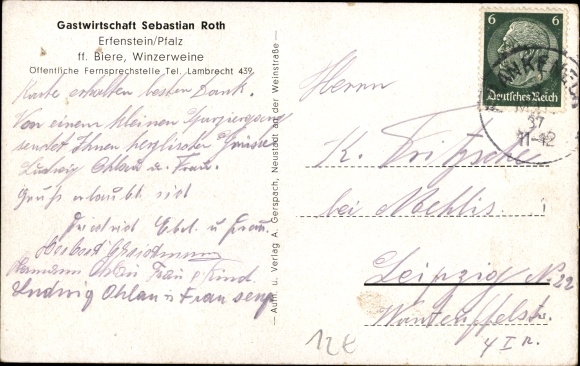 Gastwirtschaft Sebastian Roth
Erfenstein/Pfalz
ff. Biere, Winzerweine
Öffentliche Fernsprechstelle Tel. Lambrecht 439
Karte erhalten besten Dank.
Von einem kleinen Spaziergang
sendet Ihnen herzliche Grüße
Ludwig Ohlau u. Frau.
Gruß erlaubt sich
Friedrich Ebel u Frau.
Herbert
Hermann Ohlau Frau & Kind
Ludwig Ohlau u Frau senj
Aufn. u. Verlag A. Gerspach, Neustadt an der Weinstraße
6 6
Deutsches Reich
37
11-12
Herrn
K. Fritzsche
bei Mehlis
Leipzig N 22
Wanteuffelstr.
4 I r.
12€